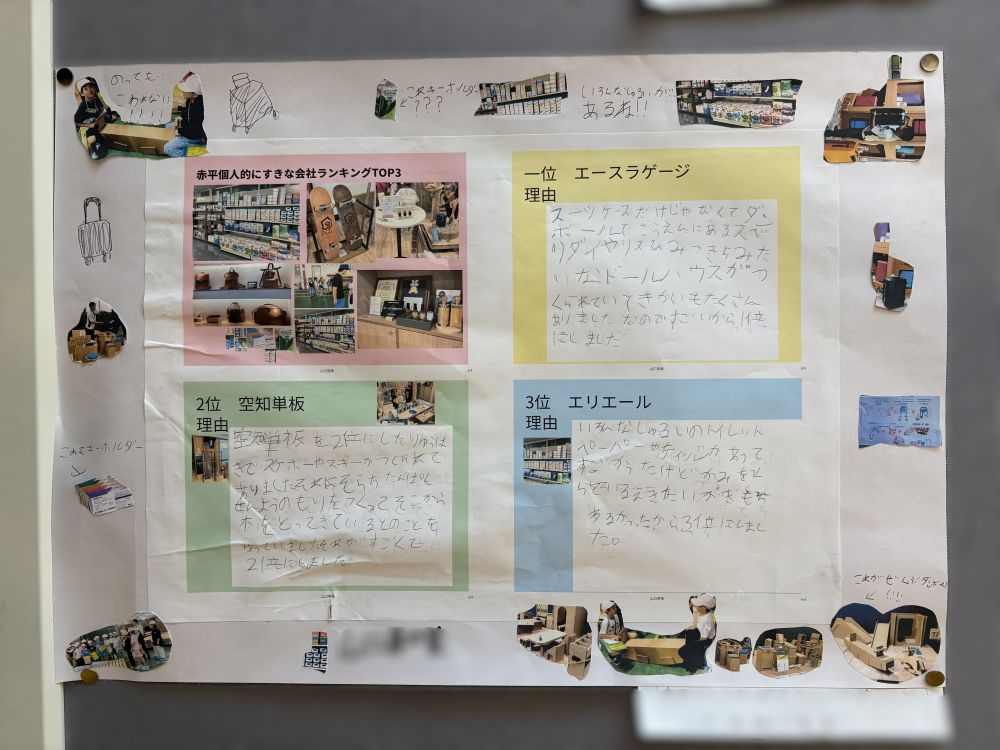 のっても…
こわれない
!!!!
これキーホルダー
???
いろんなしゅるいが
あるね!!
赤平個人的にすきな会社ランキングTOP3
一位 エースラゲージ
理由
スーツケースだけじゃなくてダン
ボールでこうえんにあるスベ
リダイやリスひみつきちみた
いなドールハウスがつ
くられていてきかいもたくさん
ありましたなのですごいから1位
にしました
2位 空知単板
理由
空知単板を2位にしたりゆうは
スケボーやスキーがつくられて
きりましたそれにそらちたんぱん
せんようのもりをつくってそこから
木をとってきているとのことを
いっていましたそれがすごくて
2位にしました
3位 エリエール
理由
いろんなしゅるいのトイレット
ペーパーやティッシュがあって
すごかったけどかみを
3位にしまし
た。
これもキーホルダー
これがぜんぶダンボール
!!!